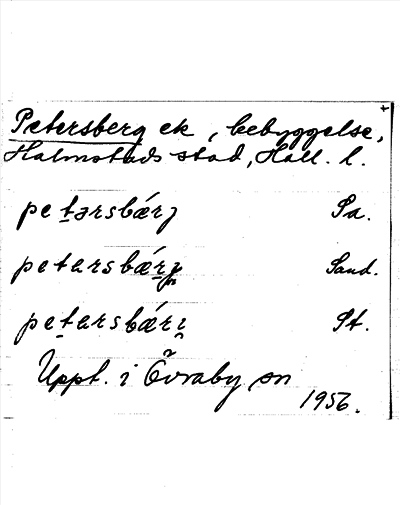 Petersberg ek, bebyggelse, +
Halmstads stad, Hall. l.
petərsbǽrj Sa.
petarsbǽrj Sand.
petarsbǽri̯ St.
Uppt. i Övraby sn
1956.